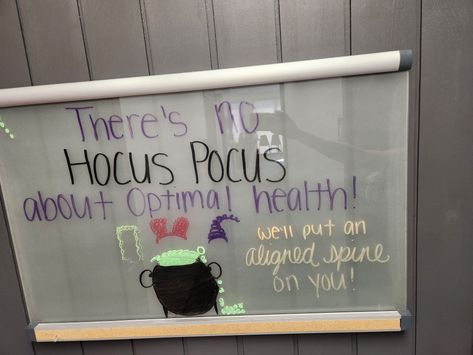 There's no
Hocus Pocus
about Optimal health!
we'll put an
aligned spine
on you!